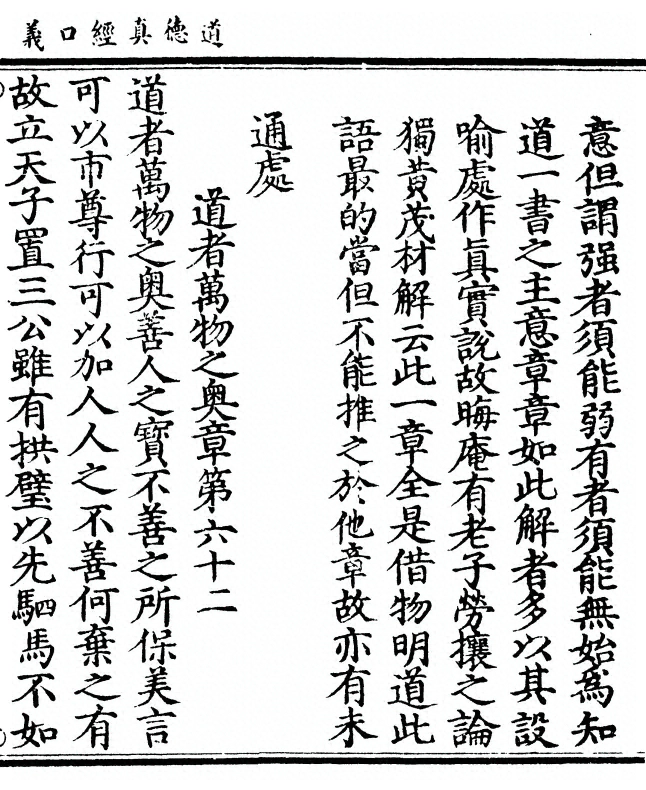 道德真經口義
意但謂强者須能弱有者須能無始爲知
道一書之主意章章如此解者多以其設
喻處作眞實說故晦庵有老子勞攘之論
獨黄茂材解云此一章全是借物明道此
語最的當但不能推之於他章故亦有未
通處
道者萬物之奥章第六十二
道者萬物之奥善人之寶不善之所保美言
可以市尊行可以加人人之不善何棄之有
故立天子置三公雖有拱璧以先駟馬不如